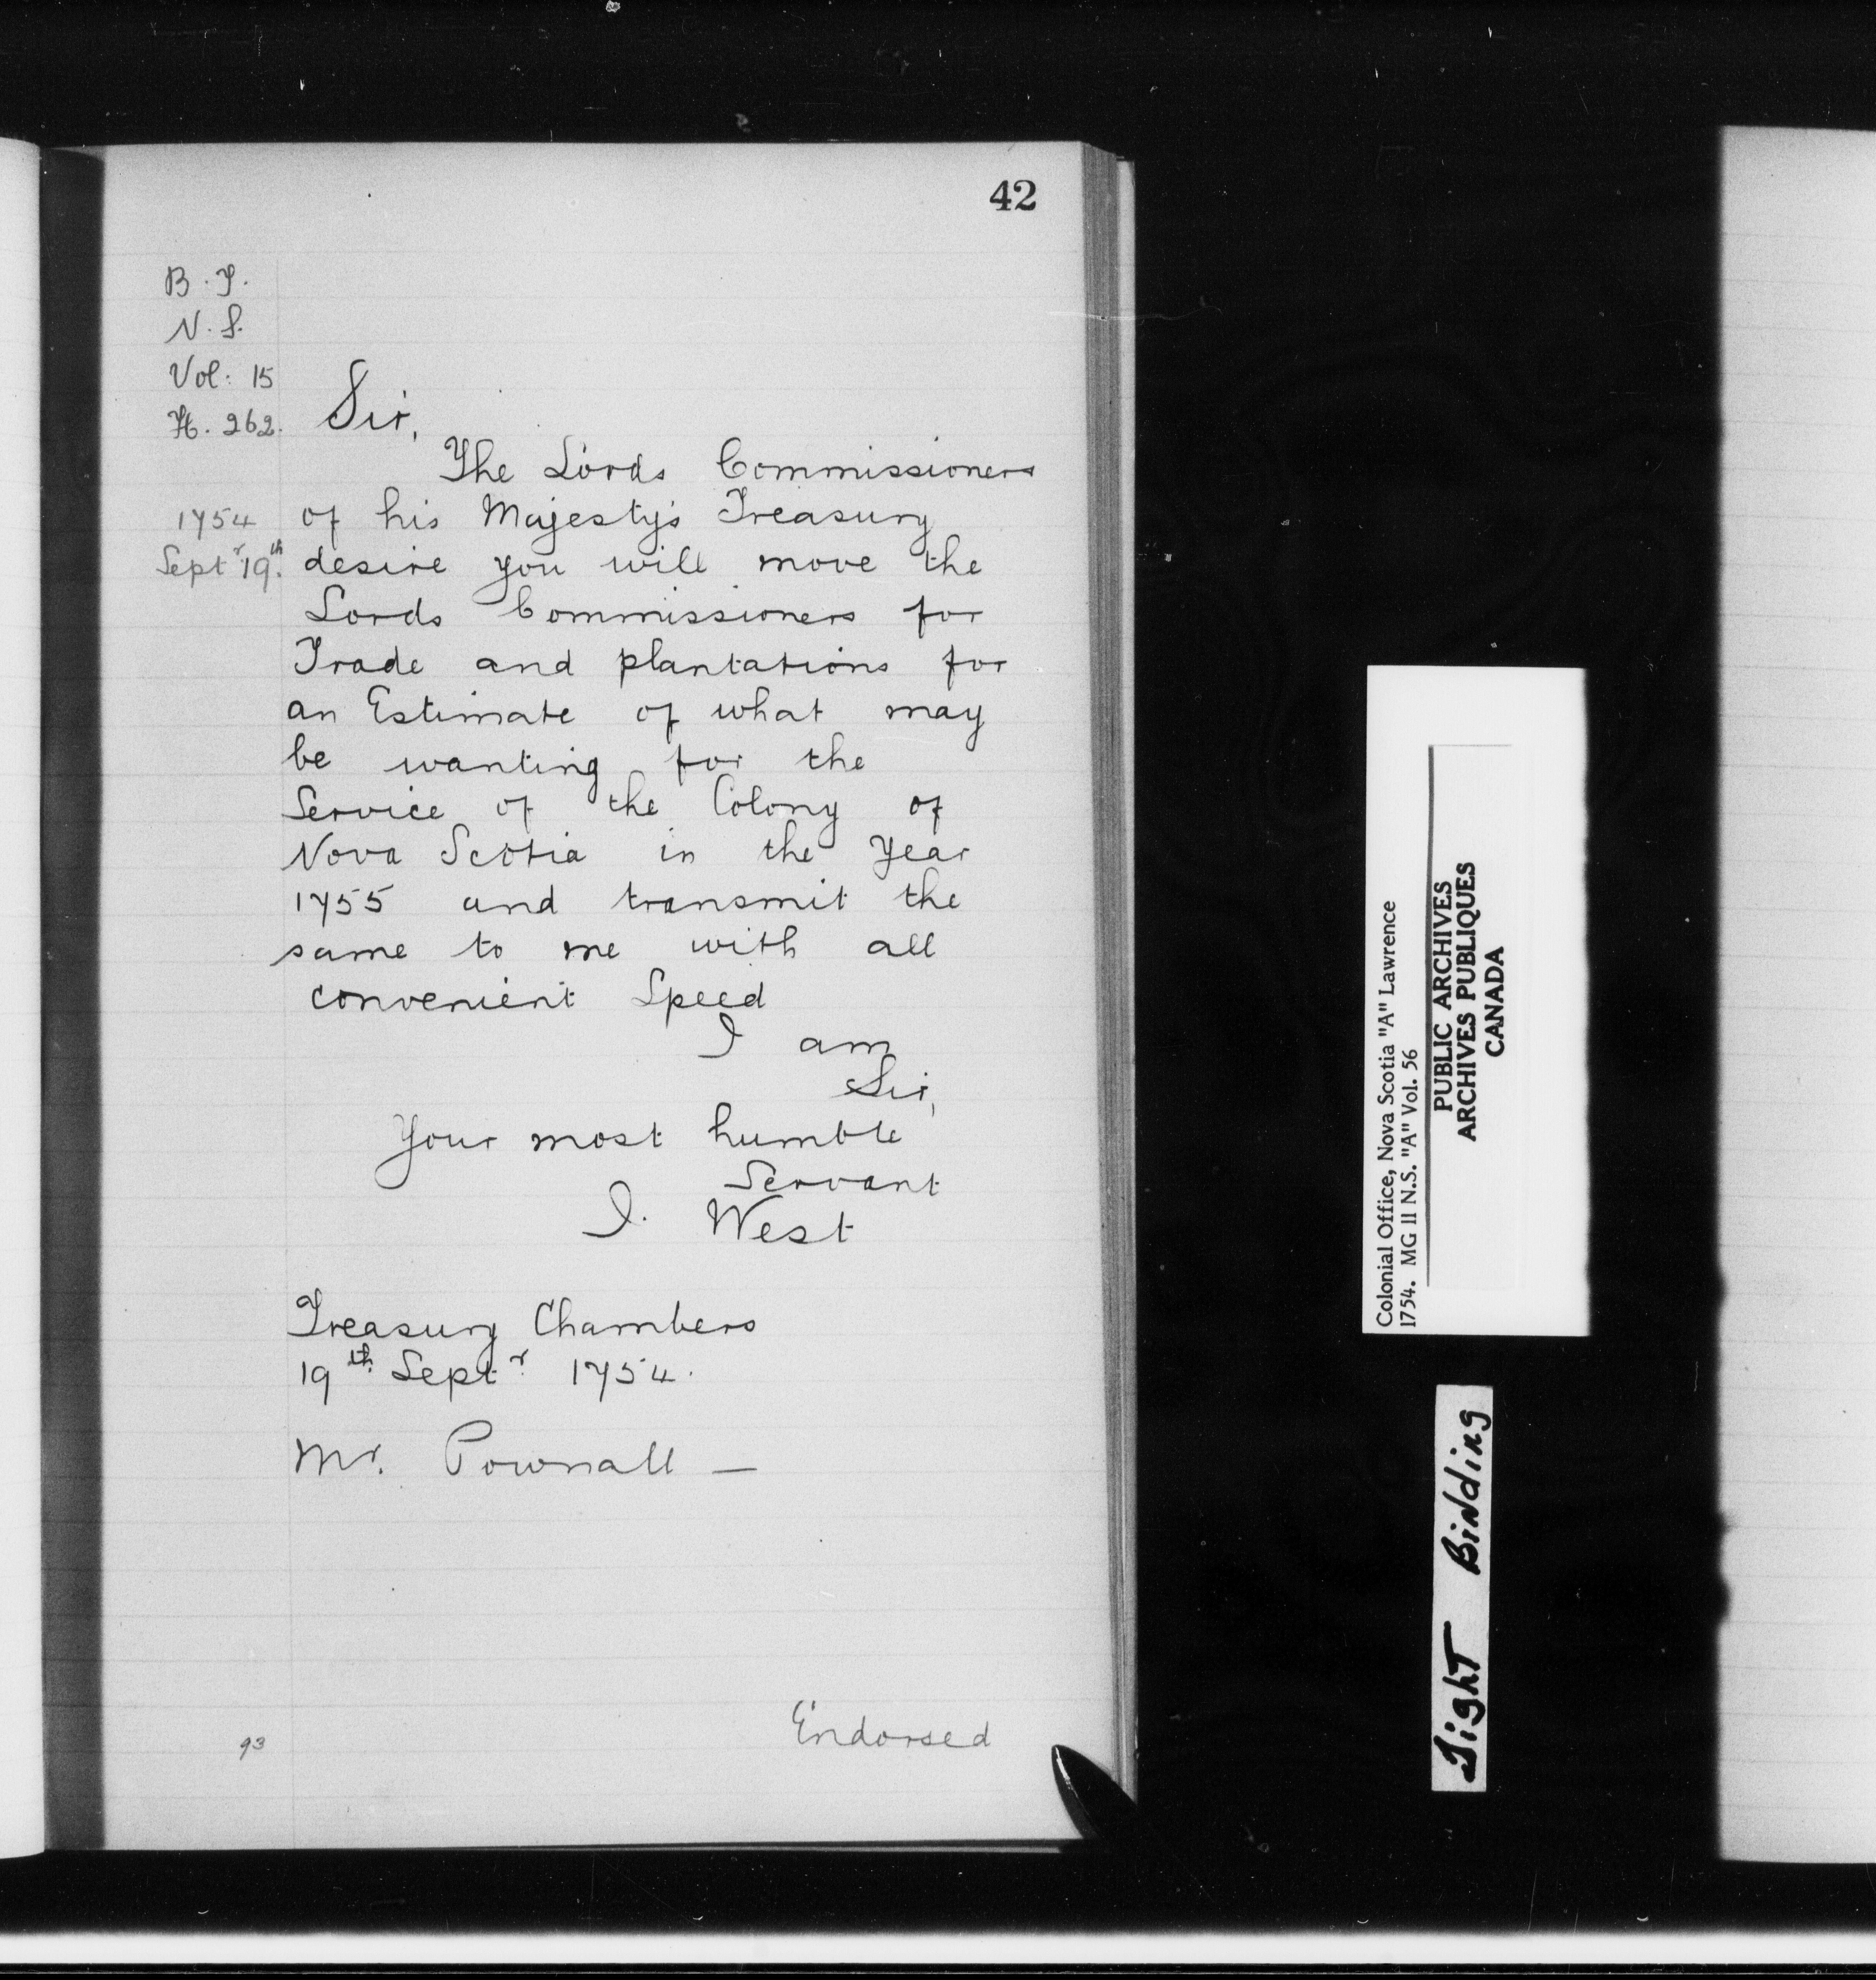 42
B. T.
N. S.
Vol: 15
H. 262.
Sir,
The Lords Commissioners
1754
of his Majesty's Treasury
Septr 19th.
desire you will move the
Lords Commissioners for
Trade and plantations for
an Estimate of what may
be wanting for the
Service of the Colony of
Nova Scotia in the Year
1755 and transmit the
same to me with all
convenient Speed
I am
Sir,
Your most humble
Servant
J. West
Treasury Chambers
19th Septr 1754.
Mr. Pownall —
Endorsed
93
Colonial Office, Nova Scotia "A" Lawrence
1754. MG 11 N.S. "A" Vol. 56
PUBLIC ARCHIVES
ARCHIVES PUBLIQUES
CANADA
Tight Binding